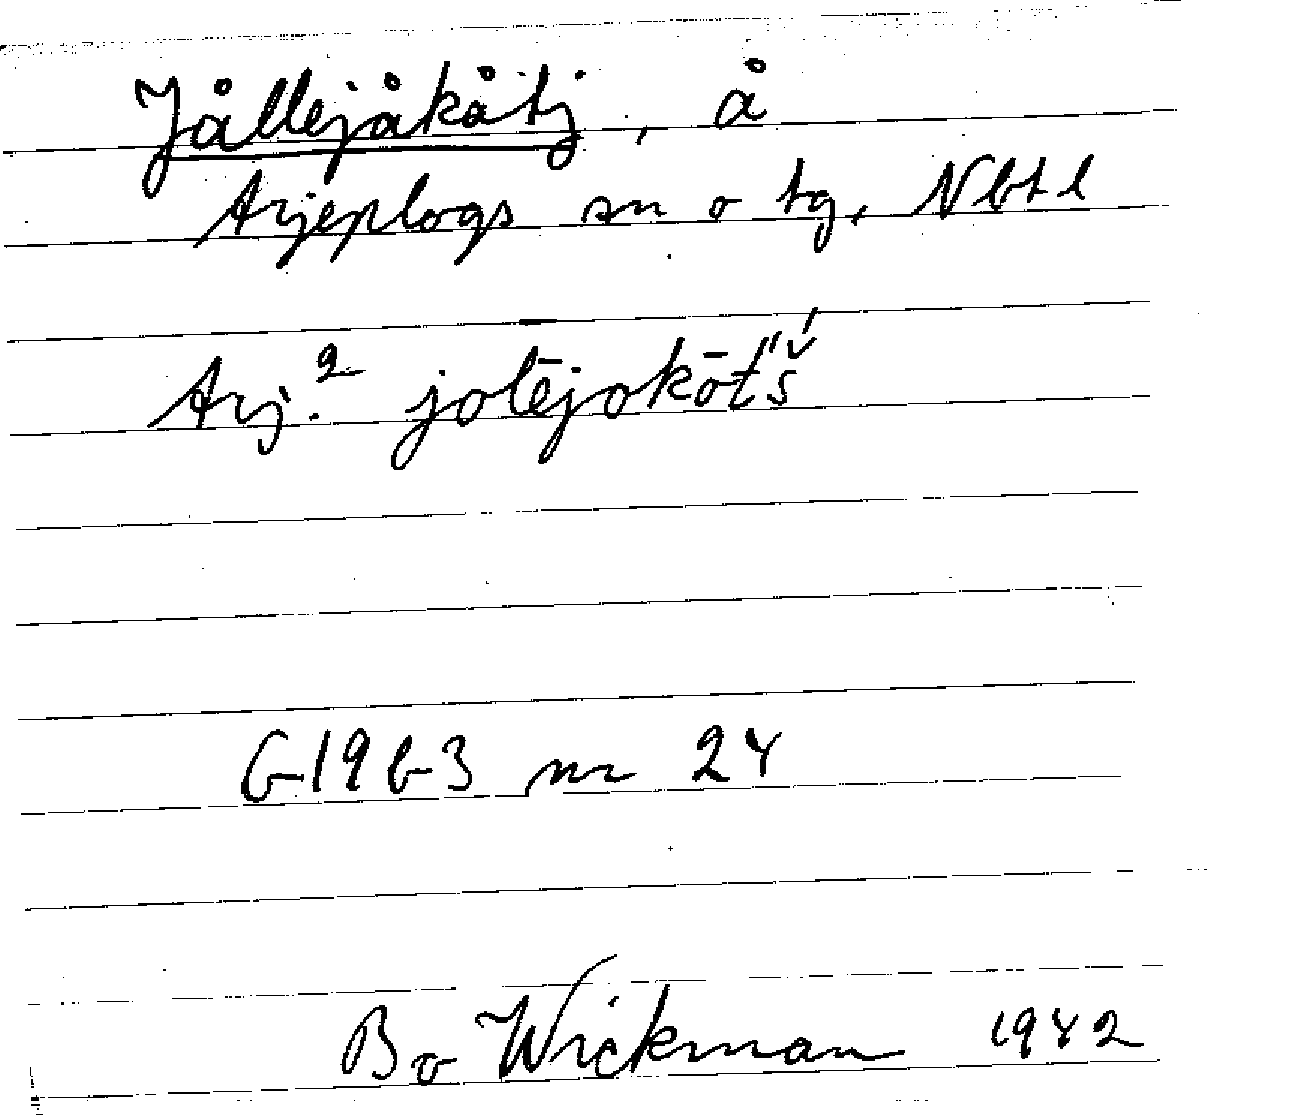 Jållejåkåtj, å
Arjeplogs sn o tg, Nbt l
Arj.2 jolējokōt́š́
G1963 nr 24
Bo Wickman 1942